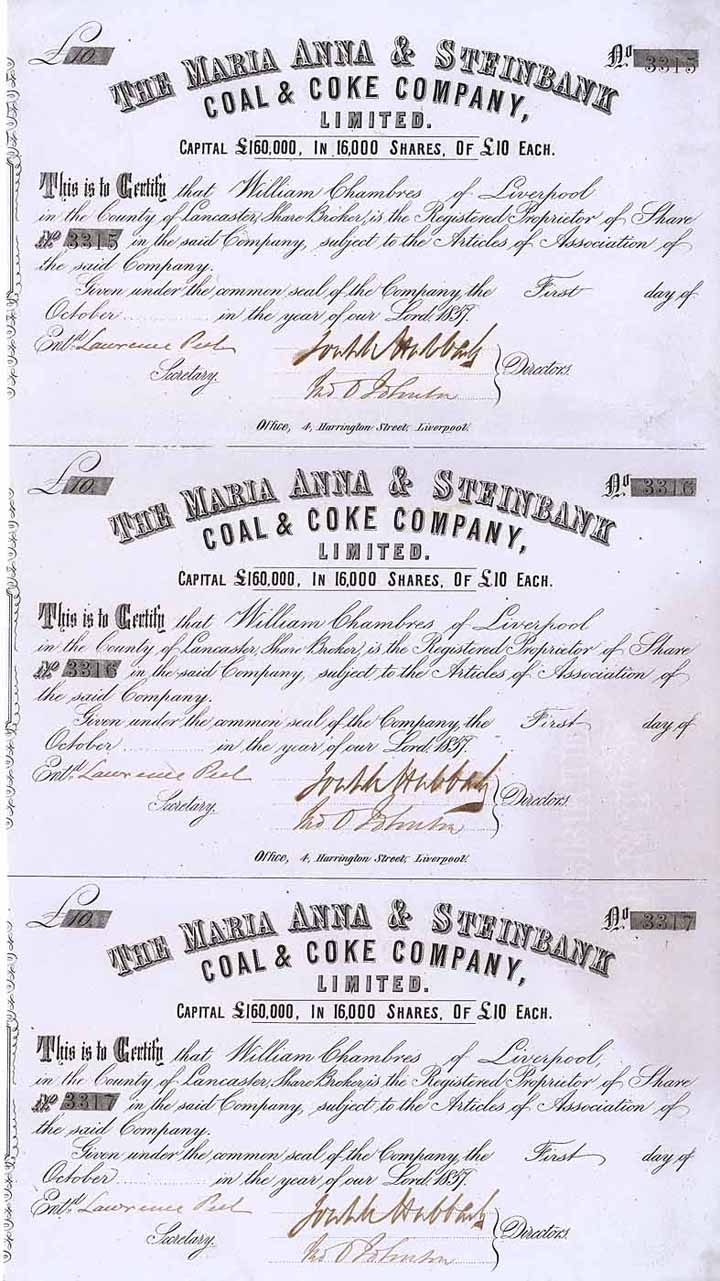 £10. No. 3315
THE MARIA ANNA & STEINBANK
COAL & COKE COMPANY,
LIMITED.
CAPITAL £160,000, IN 16,000 SHARES, OF £10 EACH.
This is to Certify that William Chambres of Liverpool
in the County of Lancaster, Share Broker, is the Registered Proprietor of Share
No. 3315 in the said Company, subject to the Articles of Association of
the said Company.
Given under the common seal of the Company, the First day of
October in the year of our Lord 1857.
Entd. Lawrence Peel
Secretary. Directors
Office, 4, Harrington Street, Liverpool.
£10. No. 3316
THE MARIA ANNA & STEINBANK
COAL & COKE COMPANY,
LIMITED.
CAPITAL £160,000, IN 16,000 SHARES, OF £10 EACH.
This is to Certify that William Chambres of Liverpool
in the County of Lancaster, Share Broker, is the Registered Proprietor of Share
No. 3316 in the said Company, subject to the Articles of Association of
the said Company.
Given under the common seal of the Company, the First day of
October in the year of our Lord 1857.
Entd. Lawrence Peel
Secretary. Directors
Office, 4, Harrington Street, Liverpool.
£10. No. 3317
THE MARIA ANNA & STEINBANK
COAL & COKE COMPANY,
LIMITED.
CAPITAL £160,000, IN 16,000 SHARES, OF £10 EACH.
This is to Certify that William Chambres of Liverpool,
in the County of Lancaster, Share Broker, is the Registered Proprietor of Share
No. 3317 in the said Company, subject to the Articles of Association of
the said Company.
Given under the common seal of the Company, the First day of
October in the year of our Lord 1857.
Entd. Lawrence Peel
Secretary. Directors